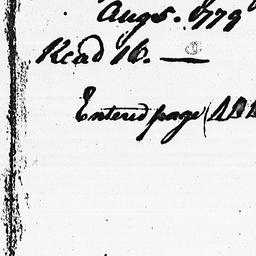 Augt. 1779
Read 16. —
Entered page (